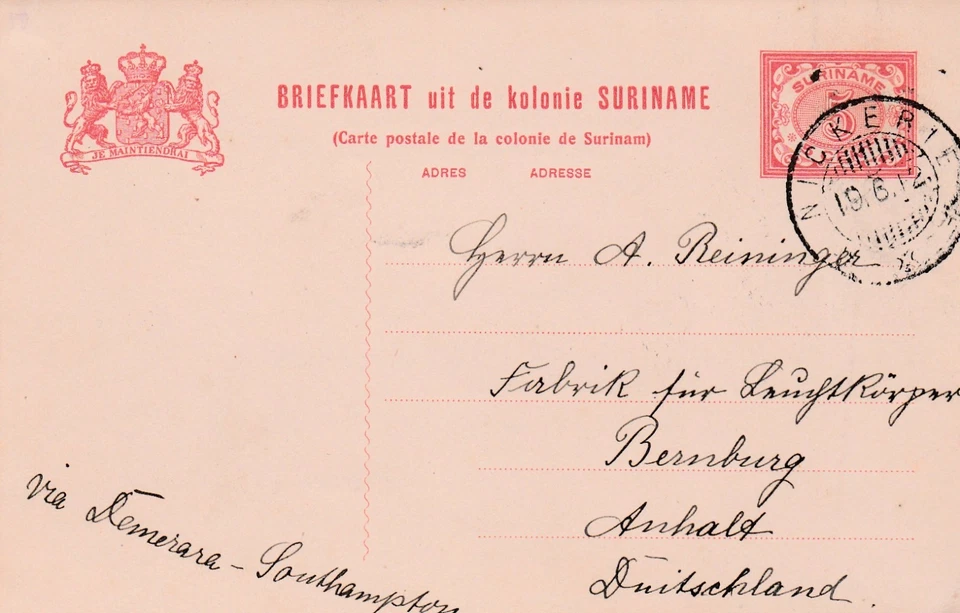 JE MAINTIENDRAI
BRIEFKAART uit de kolonie SURINAME
(Carte postale de la colonie de Surinam)
ADRES ADRESSE
SURINAME
5
NICKERIE
19.6.12
Herrn A. Reininger
Fabrik für Leuchtkörper
Bernburg
Anhalt
Duitschland
via Demerara - Southampton